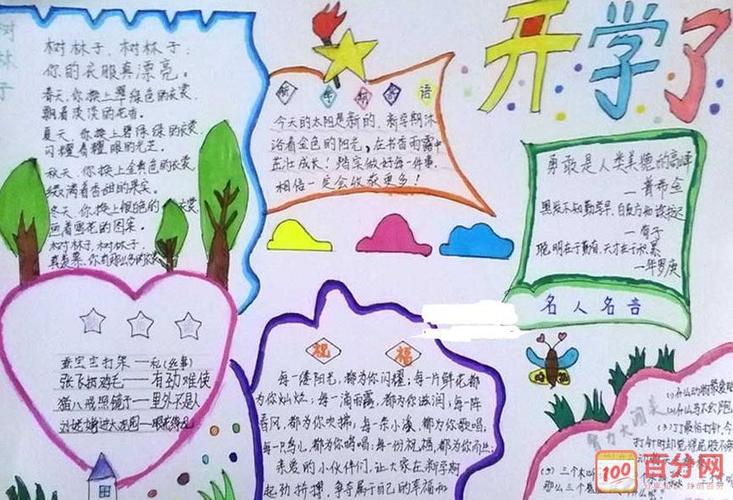 开学了
树林子
树林子、树林子，
你的衣服真漂亮。
春天，你换上翠绿色的衣裳，
飘着淡淡的花香。
夏天，你换上碧绿的衣裳
闪耀着耀眼的光芒。
秋天，你换上金黄色的衣裳
缀满着香甜的果实。
冬天，你换上银色的衣裳
画着雪花的图案。
树林子、树林子，
语
今天的太阳是新的，新学期沐
浴着金色的阳光，在书香雨露中
茁壮成长！踏实做好每一件事，
相信一定会收获更多！
勇敢是人类美德的高峰
——普希金
黑发不知勤学早，白首方
聪明在于勤奋，天才在于积累
——华罗庚
名人名言
蚕宝宝打架——私（丝事）
张飞抓鸡毛——有劲难使
猪八戒照镜子——里外不是人
刘姥姥进大观园——眼花缭乱
祝福
每一缕阳光，都为你闪耀；每一片鲜花都
为你灿烂；每一滴雨露，都为你滋润；每一阵
春风，都为你吹拂；每一条小溪，都为你歌唱；
每一只鸟儿，都为你鸣唱；每一份祝福，都为你
亲爱的小伙伴们，让大家在新学期
起劲拼搏，争等属于自己的幸福和
智力大闯关
三个木
那么三个
100
百分网